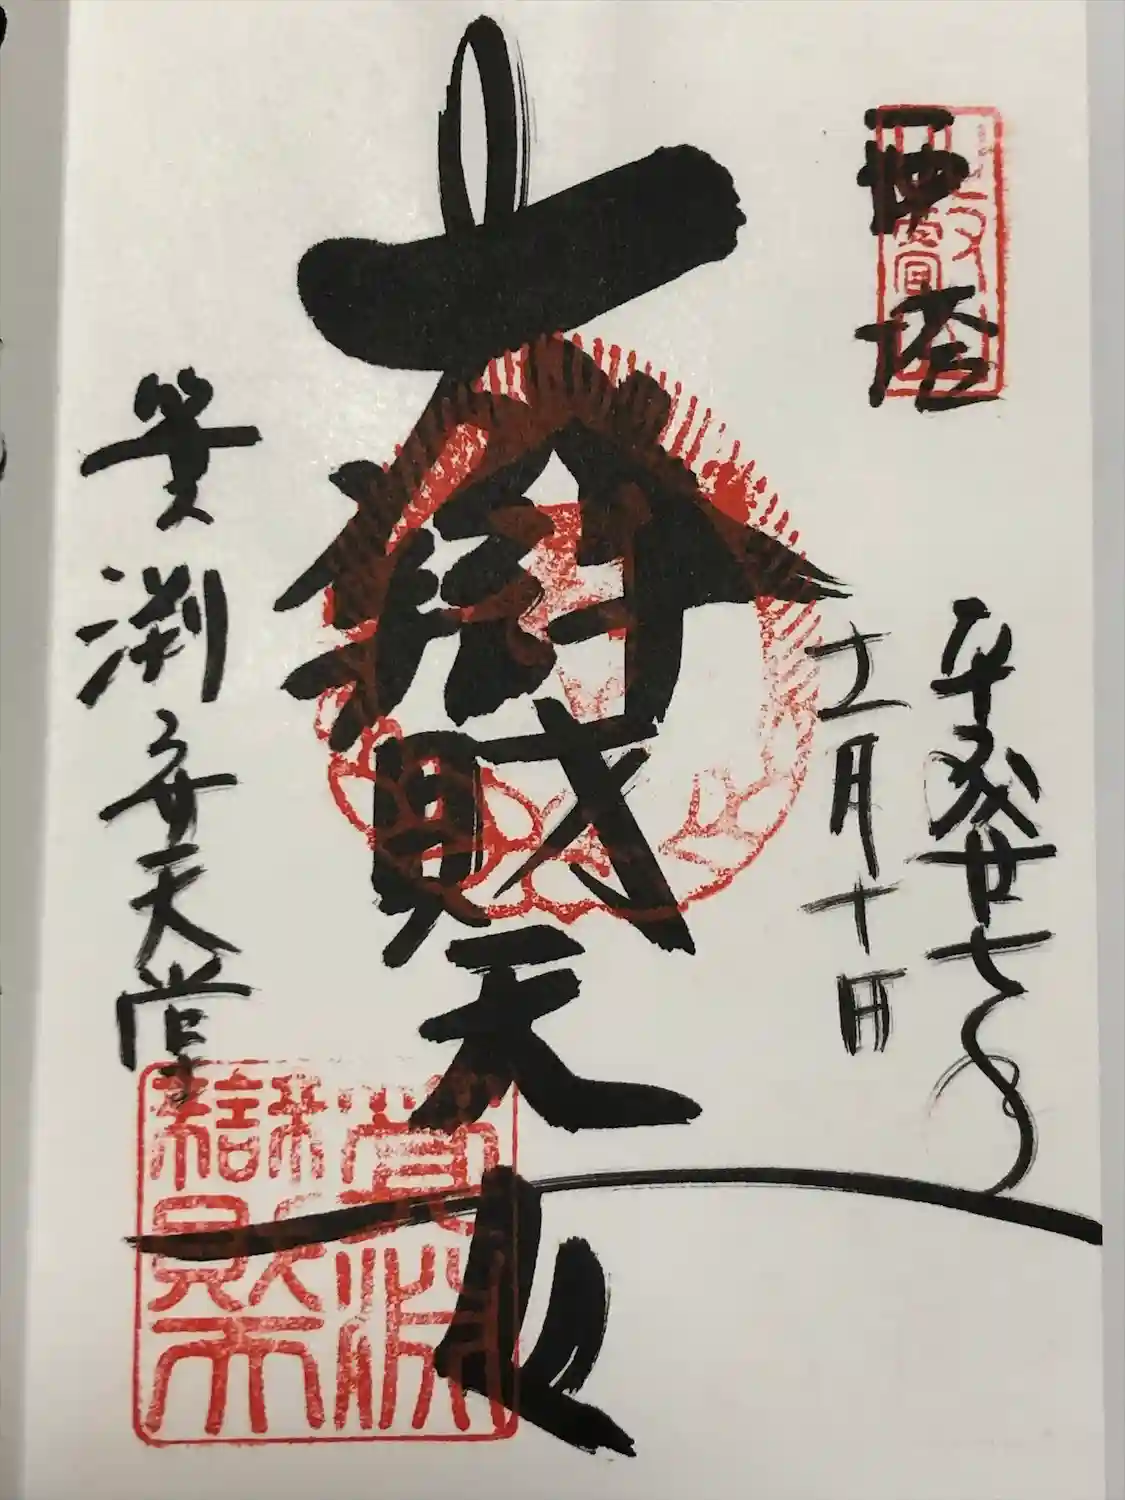 西塔
平成廿七年
十一月十日
大辨財天女
箕淵弁天堂